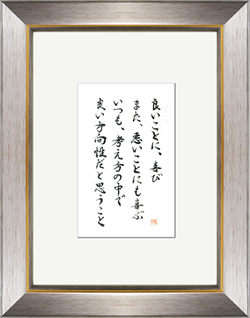 良いことに、喜び
また、悪いことにも喜ぶ
いつも、考え方の中で
良い方向性だと思うこと